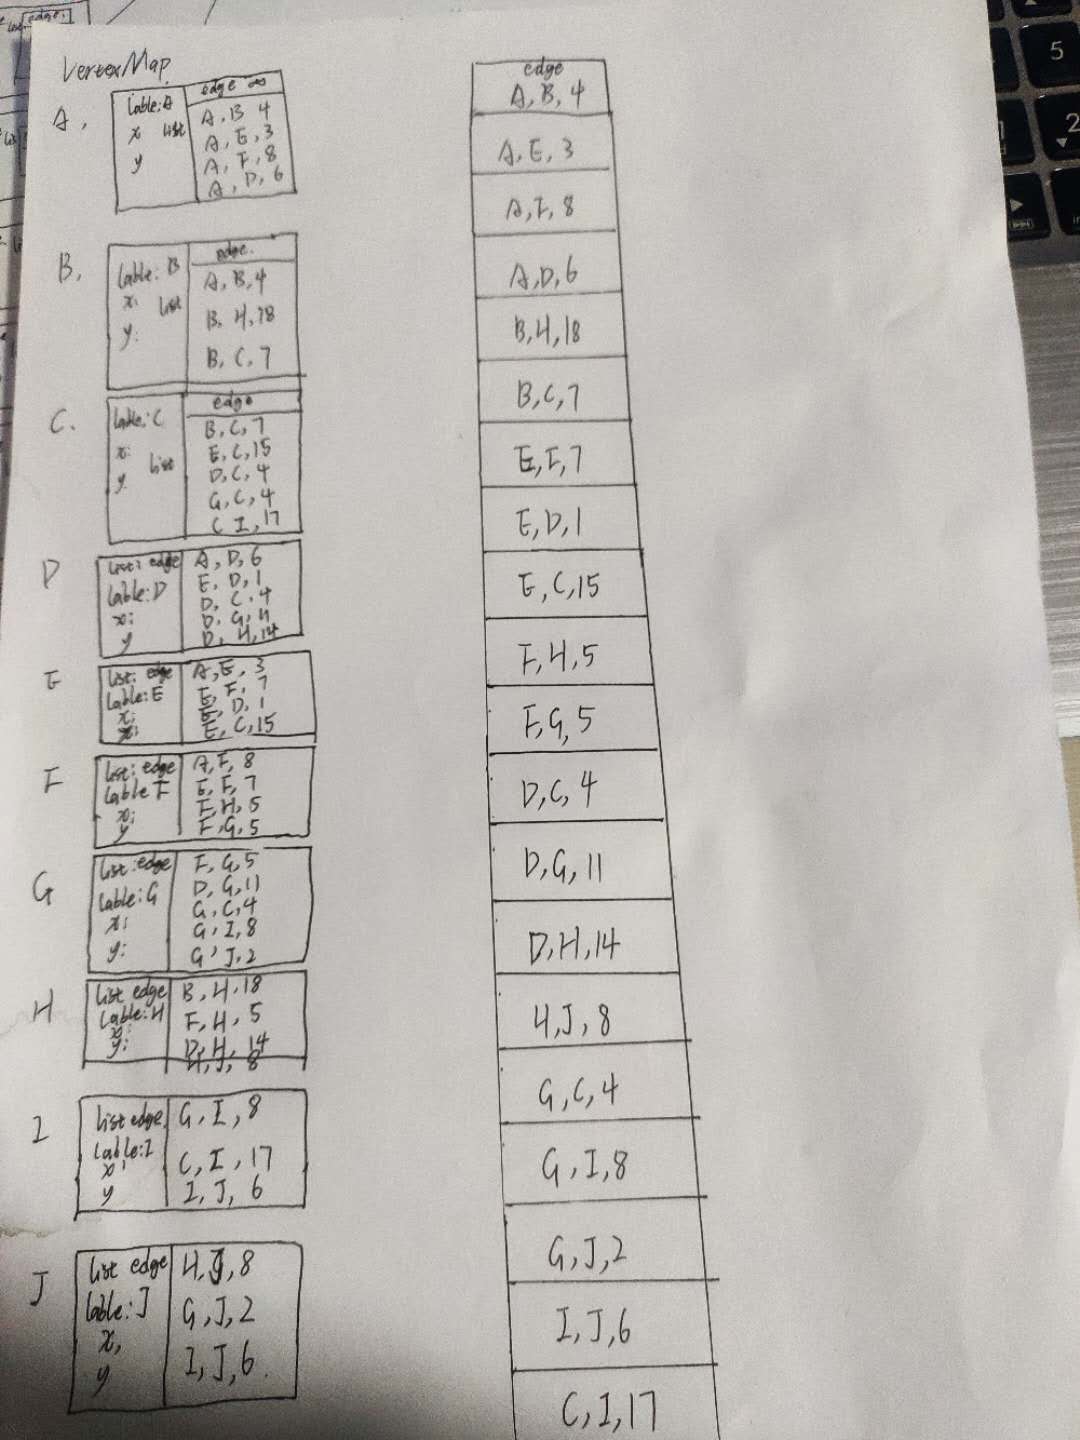 VertexMap
A.
lable:A
x list
y
edge
A, B 4
A, E, 3
A, F, 8
A, D, 6
B.
lable: B
x: list
y:
edge.
A, B, 4
B, H, 18
B, C, 7
C.
lable: C
x: list
y
edge
B, C, 7
E, C, 15
D, C, 4
G, C, 4
C I, 17
D
list: edge
lable:D
x:
y
A, D, 6
E, D, 1
D, C, 4
D, G, 11
D, H, 14
E
list: edge
lable:E
x:
A, E, 3
E, F, 7
E, D, 1
E, C, 15
F
list: edge
lable F
x:
y
A, F, 8
E, F, 7
F, H, 5
F, G, 5
G
list: edge
lable: G
x:
y:
F, G, 5
D, G, 11
G, C, 4
G, I, 8
G, J, 2
H
list edge
lable: H
x:
y:
B, H, 18
F, H, 5
D, H, 14
H, J, 8
I
list edge
lable: I
x
y
G, I, 8
C, I, 17
I, J, 6
J
list edge
lable: J
x,
y
H, J, 8
G, J, 2
I, J, 6
edge
A, B, 4
A, E, 3
A, F, 8
A, D, 6
B, H, 18
B, C, 7
E, F, 7
E, D, 1
E, C, 15
F, H, 5
F, G, 5
D, C, 4
D, G, 11
D, H, 14
H, J, 8
G, C, 4
G, I, 8
G, J, 2
I, J, 6
C, I, 17
5
2